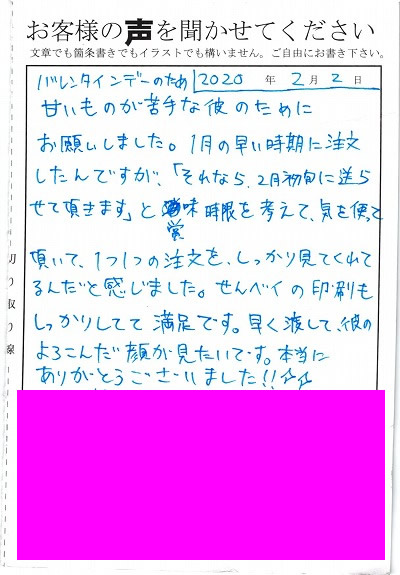 お客様の声を聞かせてください
文章でも箇条書きでもイラストでも構いません。ご自由にお書き下さい。
バレンタインデーのため 2020 年 2 月 2 日
甘いものが苦手な彼のために
お願いしました。1月の早い時期に注文
したんですが、「それなら、2月初旬に送ら
せて頂きます」と賞味時限を考えて、気を使って
頂いて、1つ1つの注文を、しっかり見てくれて
るんだと感じました。せんべイの印刷も
しっかりしてて満足です。早く渡して、彼の
よろこんだ顔が見たいです。本当に
ありがとうございました!!☆☆
切り取り線